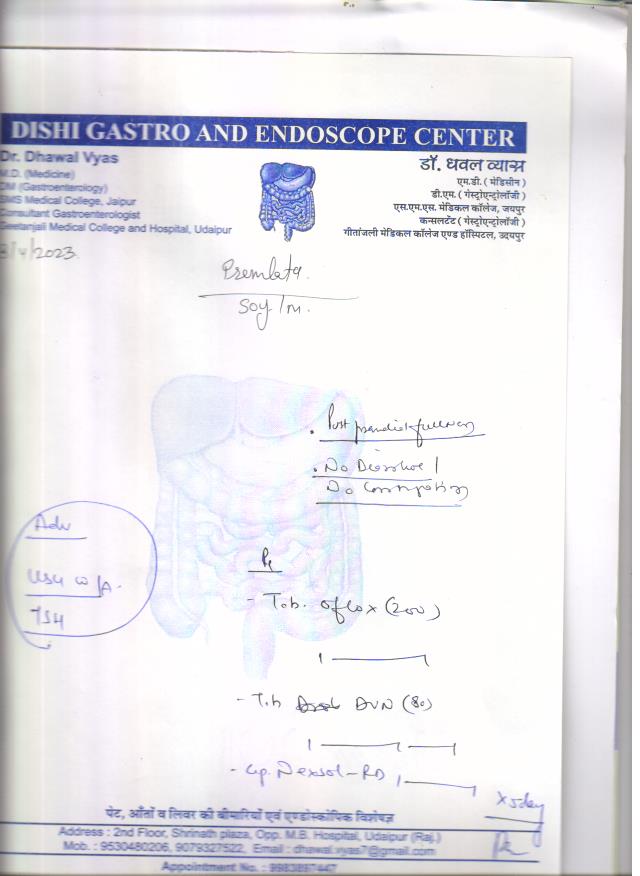 DISHI GASTRO AND ENDOSCOPE CENTER
Dr. Dhawal Vyas
M.D. (Medicine)
DM (Gastroenterology)
SMS Medical College, Jaipur
Consultant Gastroenterologist
Geetanjali Medical College and Hospital, Udaipur
डॉ. धवल व्यास
एम.डी. ( मेडिसीन )
डी.एम. ( गेस्ट्रोएन्ट्रोलॉजी )
एस.एम.एस. मेडिकल कॉलेज, जयपुर
कन्सलटेंट ( गेस्ट्रोएन्ट्रोलॉजी )
गीतांजली मेडिकल कॉलेज एण्ड हॉस्पिटल, उदयपुर
/4/2023
Premlata
50y/m.
. Post prandial fullness
. No Diarrhoea /
No Constipation
Adv
USG W/A.
TSH
Rx
- Tab. Oflox (200)
1
- Tab DVN (80)
1
- Cap. Nexsol-RD 1
x 5 day
पेट, आँतों व लिवर की बीमारियों एवं एण्डोस्कोपिक विशेषज्ञ
Address : 2nd Floor, Shrinath plaza, Opp. M.B. Hospital, Udaipur (Raj.)
Mob. : 9530480206, 9079327522, Email : dhawal.vyas7@gmail.com
Appointment No. : 9983897447